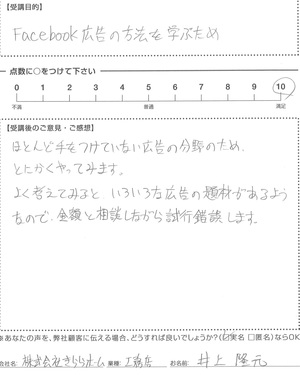 【受講目的】
Facebook広告の方法を学ぶため
点数に○をつけて下さい
0 1 2 3 4 5 6 7 8 9 10
不満 普通 満足
【受講後のご意見・ご感想】
ほとんど手をつけていない広告の分野のため、
とにかくやってみます。
よく考えてみると、いろいろな広告の題材があるよう
なので、金額と相談しながら試行錯誤します。
※あなたの声を、弊社顧客に伝える場合、どうすれば良いでしょうか？(☑実名 □匿名)ならOK
会社名: 株式会社きららホーム 業種: 工務店 お名前: 井上 隆元